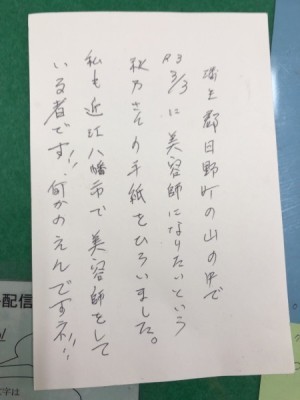 蒲生郡日野町の山の中で
R3 3/3 に美容師になりたいという
秋乃さんの手紙をひろいました。
私も近江八幡市で美容師をして
いる者です!!何かのえんですネ!!
配信
字は